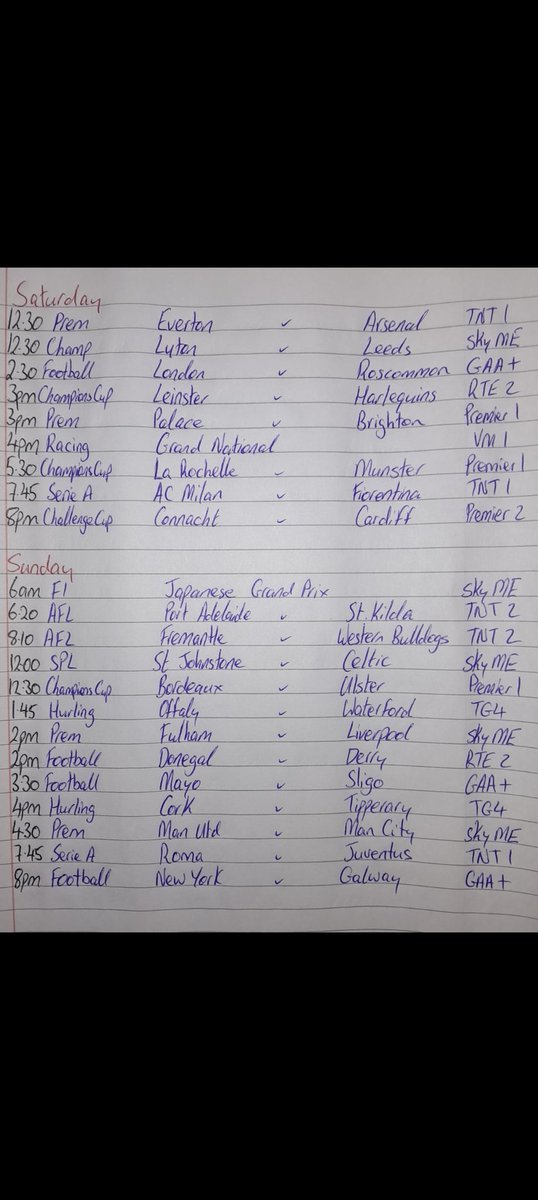 Saturday
12.30 Prem Everton v Arsenal TNT 1
12.30 Champ Luton v Leeds Sky ME
2.30 Football London v Roscommon GAA+
3pm Champions Cup Leinster v Harlequins RTE 2
3pm Prem Palace v Brighton Premier 1
4pm Racing Grand National VM 1
5.30 Champions Cup La Rochelle v Munster Premier 1
7.45 Serie A AC Milan v Fiorentina TNT 1
8pm Challenge Cup Connacht v Cardiff Premier 2
Sunday
6am F1 Japanese Grand Prix Sky ME
6.20 AFL Port Adelaide v St. Kilda TNT 2
8.10 AFL Fremantle v Western Bulldogs TNT 2
12.00 SPL St Johnstone v Celtic Sky ME
12.30 Champions Cup Bordeaux v Ulster Premier 1
1.45 Hurling Offaly v Waterford TG4
2pm Prem Fulham v Liverpool Sky ME
2pm Football Donegal v Derry RTE 2
3.30 Football Mayo v Sligo GAA+
4pm Hurling Cork v Tipperary TG4
4.30 Prem Man Utd v Man City Sky ME
7.45 Serie A Roma v Juventus TNT 1
8pm Football New York v Galway GAA+